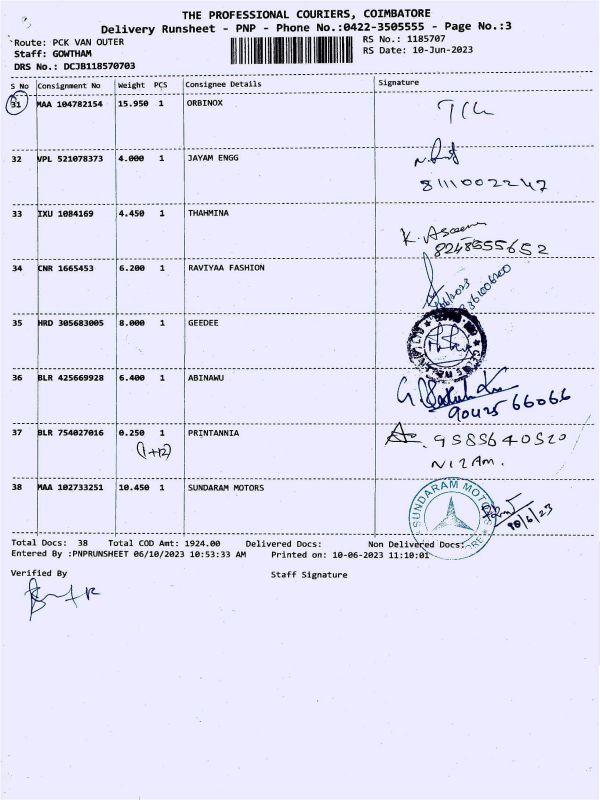 THE PROFESSIONAL COURIERS, COIMBATORE
Delivery Runsheet - PNP - Phone No.:0422-3505555 - Page No.:3
Route: PCK VAN OUTER
RS No.: 1185707
Staff: GOWTHAM
RS Date: 10-Jun-2023
DRS No.: DCJB118570703
S No Consignment No Weight PCS Consignee Details Signature
31 MAA 104782154 15.950 1 ORBINOX
32 VPL 521078373 4.000 1 JAYAM ENGG
8111002247
33 IXU 1084169 4.450 1 THAHMINA
K. Aseem
8248555652
34 CNR 1665453 6.200 1 RAVIYAA FASHION
35 HRD 305683005 8.000 1 GEEDEE
36 BLR 425669928 6.400 1 ABINAWU
90425 66066
37 BLR 754027016 0.250 1 PRINTANNIA
9585640520
(1+12)
NIZAM.
38 MAA 102733251 10.450 1 SUNDARAM MOTORS
SUNDARAM MOTORS
10/6/23
Total Docs: 38 Total COD Amt: 1924.00 Delivered Docs: Non Delivered Docs:
Entered By :PNPRUNSHEET 06/10/2023 10:53:33 AM Printed on: 10-06-2023 11:10:01
Verified By Staff Signature